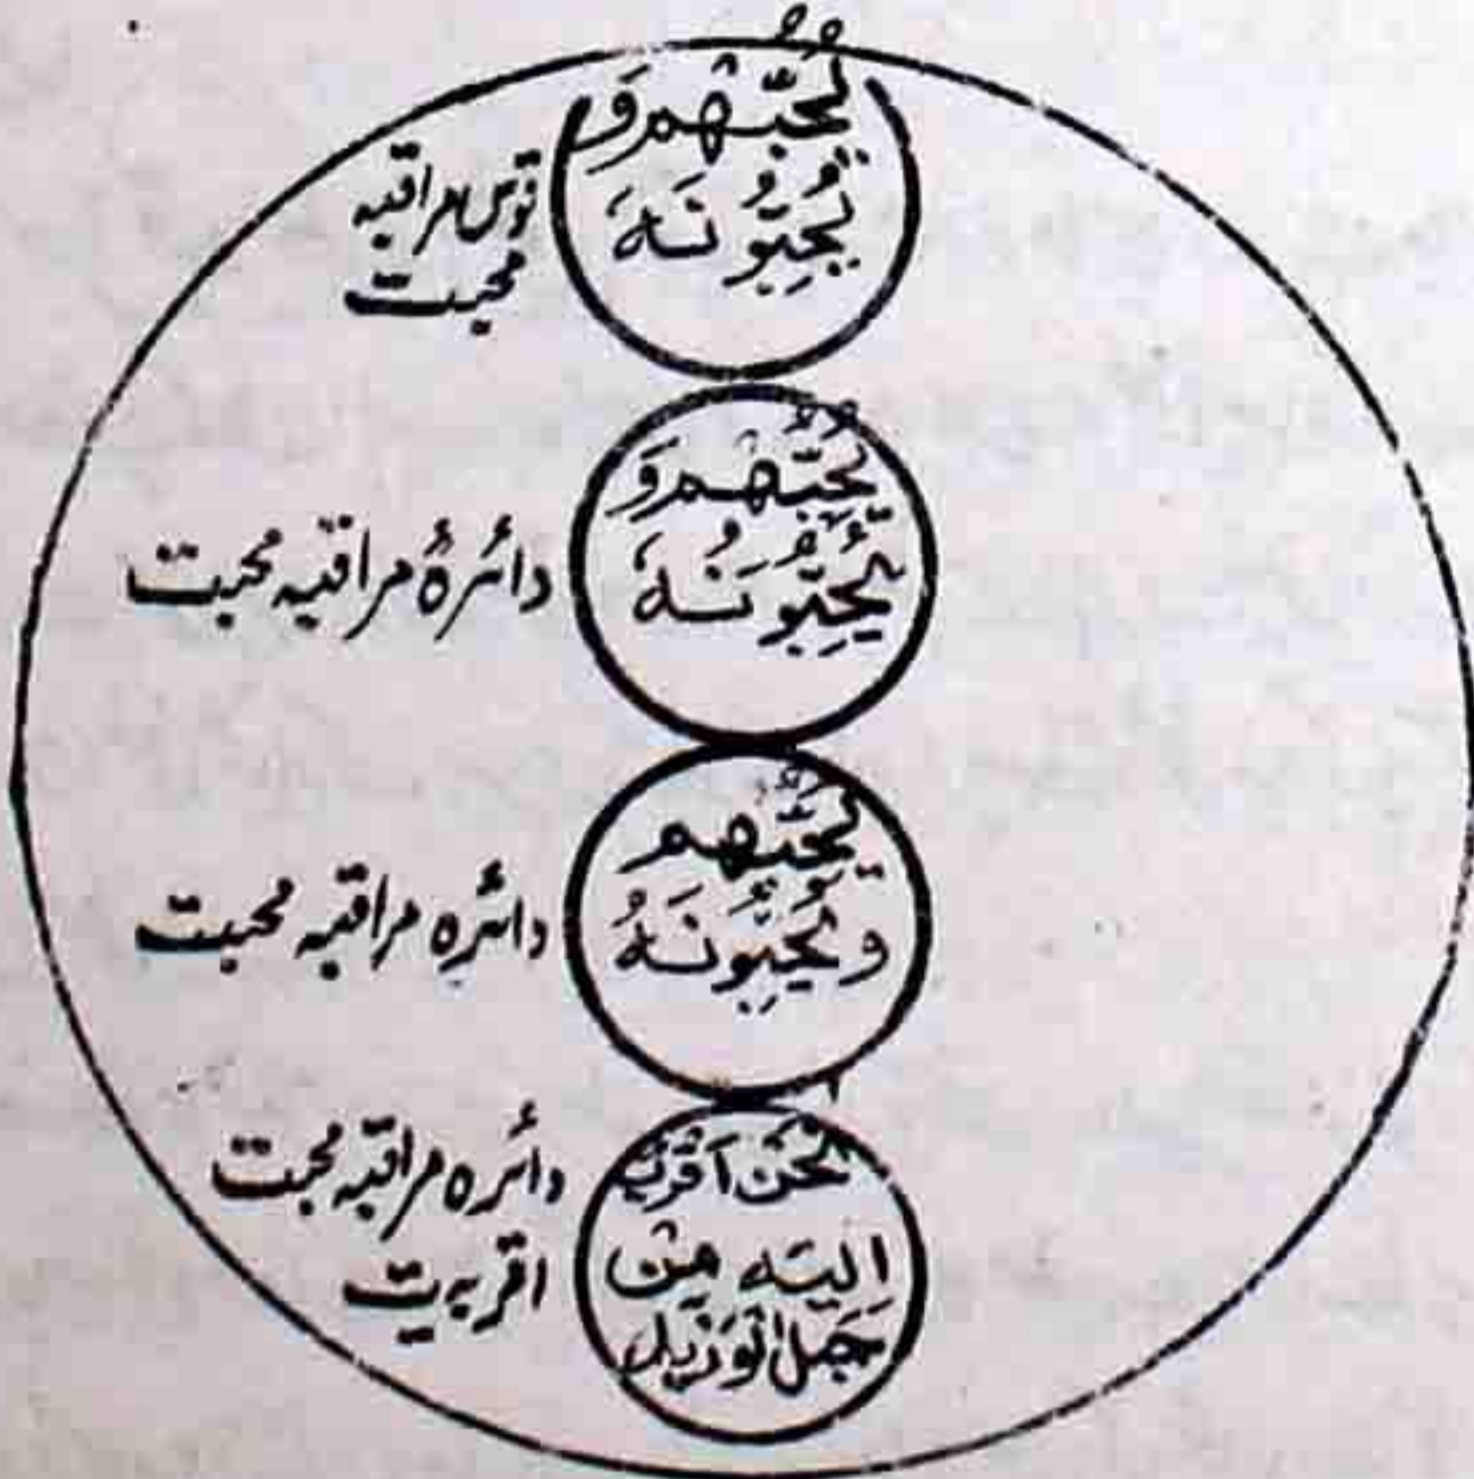 يُحِبُّهُمْ وَ
يُحِبُّونَهُ
قوس مراقبہ
محبت
يُحِبُّهُمْ وَ
يُحِبُّونَهُ
دائرۂ مراقبہ محبت
يُحِبُّهُمْ
وَيُحِبُّونَهُ
دائرہ مراقبہ محبت
نَحْنُ اَقْرَبُ
اِلَيْهِ مِنْ
حَبْلِ الْوَرِيْدِ
دائرہ مراقبہ محبت
اقربیت